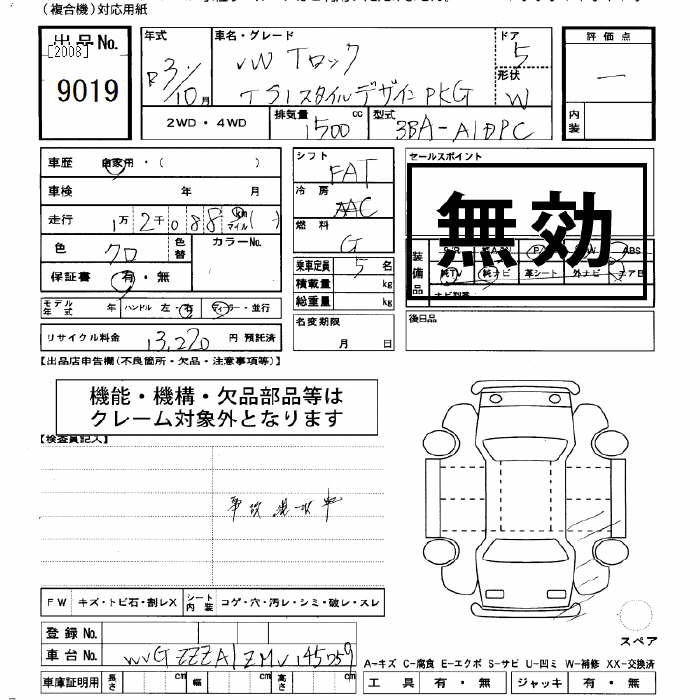 (複合機)対応用紙
出品No.
[2008]
9019
年式
R3/10月
車名・グレード
VW Tロック
TSIスタイルデザインPKG
ドア
5
形状
W
評価点
一
内装
2WD・4WD
排気量
1500
cc
型式
3BA-A1DPC
車歴 自家用・( )
車検 年 月
走行 1万2千088 km マイル ( )
色 クロ
色替
カラーNo.
保証書 有・無
モデル年式 年 ハンドル 左・右 ディーラー・並行
リサイクル料金 13,270 円 預託済
シフト
FAT
冷房
AAC
燃料
G
乗車定員 5 名
積載量 kg
総重量 kg
名変期限
月 日
セールスポイント
無効
装備品
S/R
ABS
純TV 純ナビ 革シート 外ナビ エアB
後日品
【出品店申告欄(不良箇所・欠品・注意事項等)】
機能・機構・欠品部品等は
クレーム対象外となります
【検査員記入】
事故現状車
FW キズ・トビ石・割レX
シート内装 コゲ・穴・汚レ・シミ・破レ・スレ
登録No.
車台No. WVGZZZA1ZMV145759
車庫証明用 長さ cm 幅 cm 高さ cm
スペア
A-キズ C-腐食 E-エクボ S-サビ U-凹ミ W-補修 XX-交換済
工具 有・無 ジャッキ 有・無